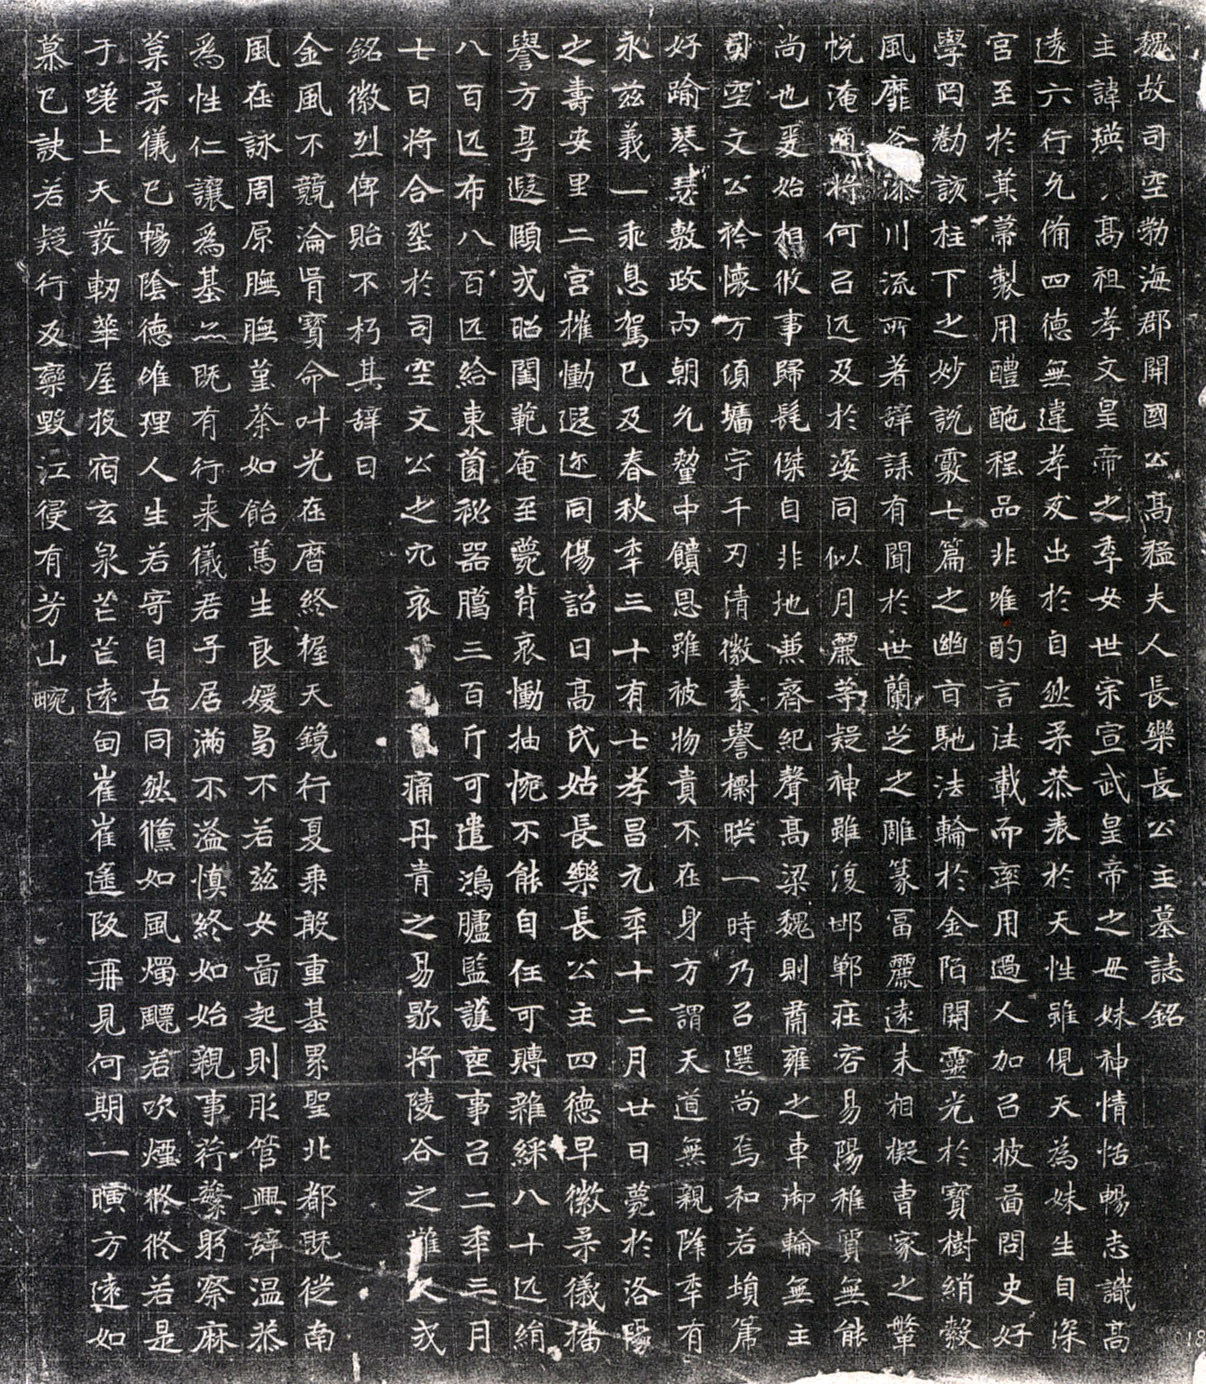 魏故司空勃海郡開國公高猛夫人長樂長公主墓誌銘
主諱瑛高祖孝文皇帝之季女世宗宣武皇帝之母妹神情恬暢志識高
遠六行允備四德無違孝友出於自然柔恭表於天性雖俔天為妹生自深
宮至於箕帚製用醴酏程品非唯酌言注載而率用過人加㠯披啚問史好
學罔勌該柱下之妙說覈七篇之幽旨馳法輪於金陌開靈光於寶樹綃縠
風靡川流所著辞誄有聞於世蘭芝之雕篆冨麗遠未相擬曹家之鞶
帨淹通將何㠯远及於姿同似月麗等疑神雖復邯鄲庄容易陽稚質無能
尚也爰始相攸事歸髦傑自非地兼齊紀聲高梁魏則肅雍之車御輪無主
司空文公衿懷万傾墉宇千刃清徽素譽檦暎一時乃㠯選尚焉和若塤篪
好踰琴瑟敷政內朝允釐中饋恩雖被物貴不在身方謂天道無親降秊有
永兹義一乖息駕巳及春秋秊三十有七孝昌元秊十二月廿日薨於洛陽
之壽安里二宮摧慟遐迩同傷詔曰高氏姑長樂長公主四德早徽柔儀播
譽方享遐頤或昭閨範奄至薨背哀慟抽惋不能自任可賻雜綵八十匹絹
八百匹布八百匹給東薗秘器臈三百斤可遣鴻臚監護喪事㠯二秊三月
七日將合塟於司空文公之穴哀痛丹青之易歇將陵谷之難久或
銘徽烈俾貽不朽其辞曰
金風不競淪胥寶命叶光在曆終握天鏡行夏乘殷重基累聖北都既從南
風在詠周原膴膴堇荼如飴篤生良媛曷不若兹女啚起則彤管興辞温恭
為性仁讓為基亦既有行来儀君子居滿不溢慎終如始親事荇蘩躬察麻
枲柔儀已暢陰德雉理人生若寄自古同然儻如風燭飄若吹煙悠悠若是
于嗟上天發軔華屋投宿玄泉芒芒遠甸崔崔遙阪再見何期一曠方遠如
慕巳訣若疑行反孌毀江侵有芳山畹